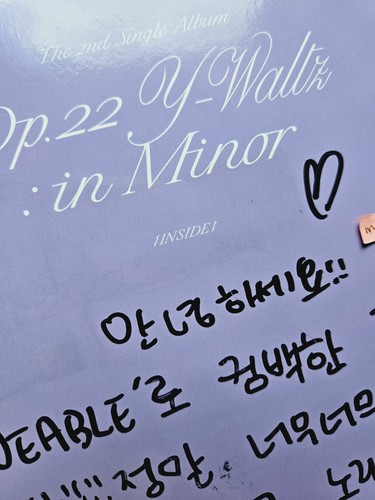 The 2nd Single Album
Op.22 Y-Waltz
: in Minor
INSIDE
안녕하세요!!
EABLE'로 컴백한
정말 너무너무
노래